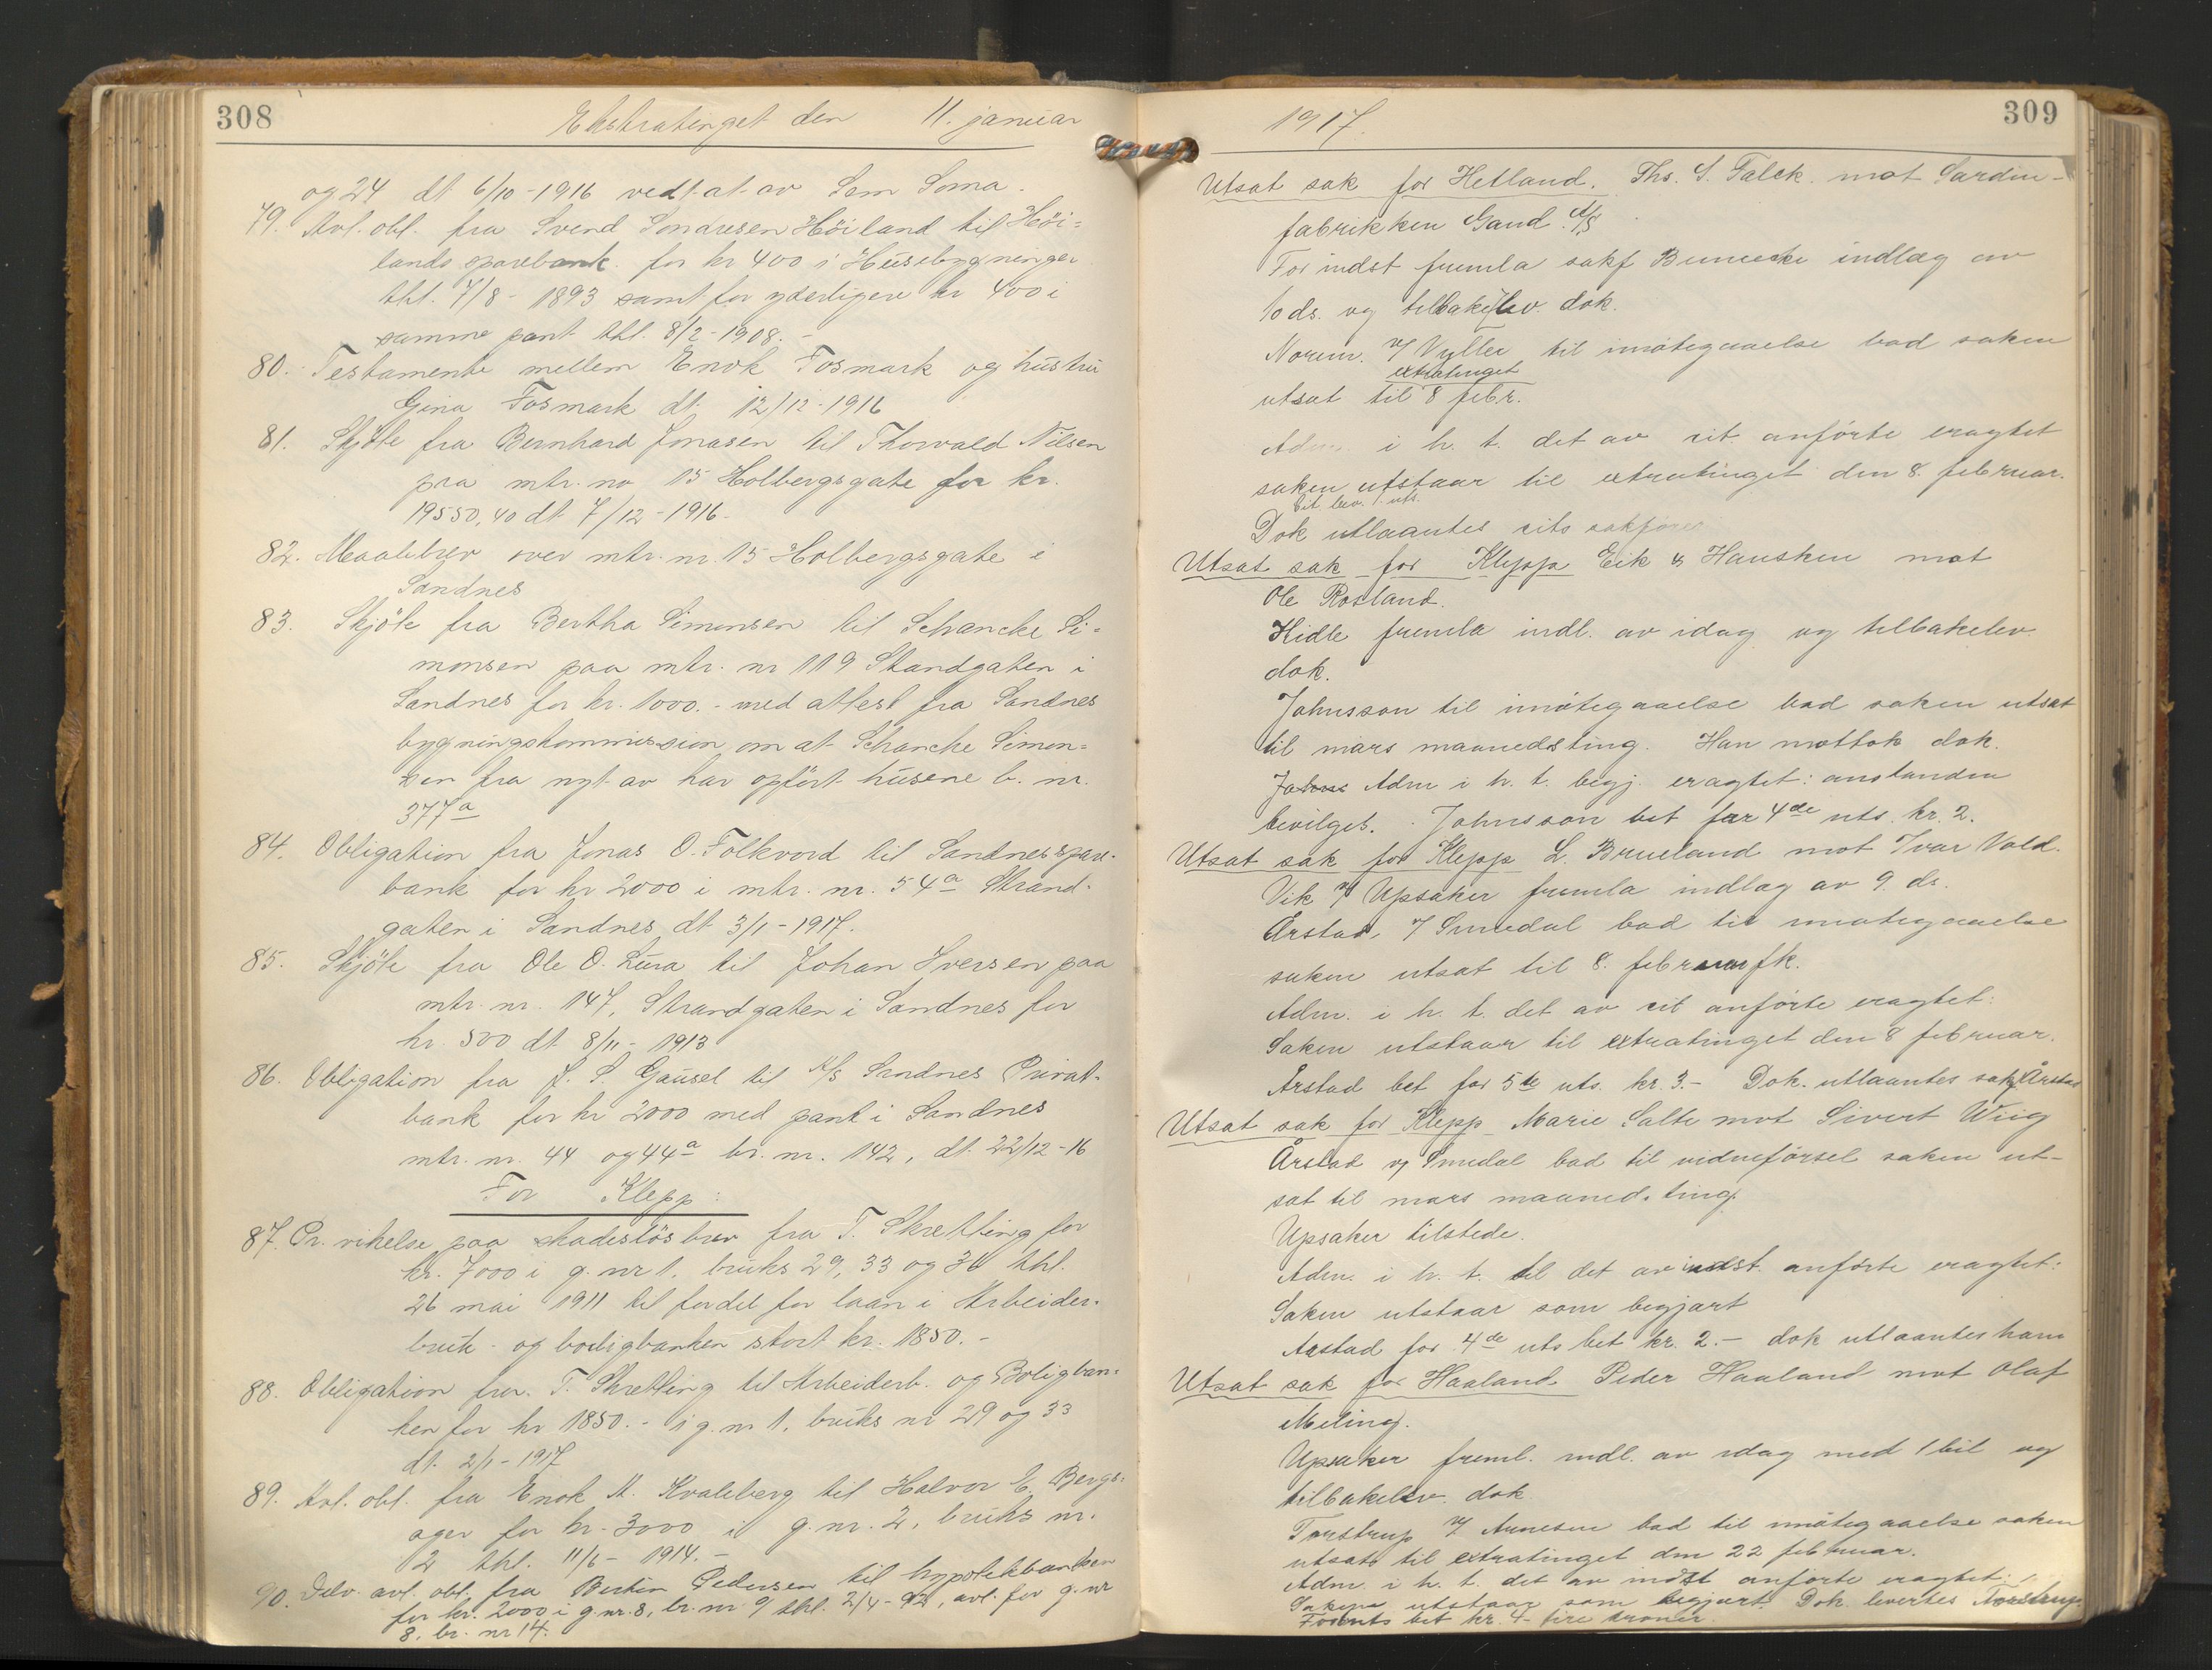 308
Ekstratinget den 11. januar
og 24 dt 6/10-1916 vedt. at av Sem Soma.
79. Avl. obl. fra Svend Sondresen Höiland til Höi=
lands sparebank for kr 400 i Husebygninger
thl. 7/8-1893 samt for yderligere kr 400 i
samme pant thl. 8/2-1908.-
80. Testamente mellem Enok Fosmark og hustru
Gina Fosmark dt. 12/12-1916
81. Skjöte fra Bernhard Jonasen til Thorvald Nilsen
paa mtr. no 15 Holbergsgate for kr.
19550,40 dt 7/12-1916.
82. Maalebrev over mtr. nr. 15 Holbergsgate i
Sandnes
83. Skjöte fra Bertha Simonsen til Schancke Si=
monsen paa mtr. nr 119 Standgaten i
Sandnes for kr. 1000.- med attest fra Sandnes
bygningskommission om at Schancke Simon=
sen fra nyt av har opfört husene b. nr.
377a
84. Obligation fra Jonas O. Folkvord til Sandnes spare-
bank for kr 2000 i mtr. nr. 54a Strand-
gaten i Sandnes dt 3/1-1917.
85. Skjöte fra Ole O. Lura til Johan Iversen paa
mtr. nr. 147, Strandgaten i Sandnes for
kr. 500 dt 8/11-1913
86. Obligation fra J. S. Gausel til A/S Sandnes Privat-
bank for kr 2000 med pant i Sandnes
mtr. nr. 44 og 44a br. nr. 142, dt. 22/12-16
For Klepp:
87. Pr. vikelse paa skadeslösbrev fra T. Skretting for
kr. 7000 i g. nr 1, bruks 29, 33 og 36 thl.
26 mai 1911 til fordel for laan i Arbeider-
bruk- og boligbanken stort kr. 1850.-
88. Obligation fra T. Skretting til Arbeiderb. og Boligban=
ken for kr 1850.- i g. nr 1, bruks nr 29 og 33
dt. 2/1-1917
89. Avl. obl. fra Enok A. Kvaleberg til Halvor E. Bergs=
ager for kr. 3000 i g. nr. 2, bruks nr.
2 thl. 11/6-1914.-
90. Delv. avl. obl. fra Bertin Pedersen til hypotekbanken
for kr. 2000 i g. nr. 8, br. nr 9 thl. 2/4-92, avl. for g. nr
8, br. nr 14.
309
1917.
Utsat sak for Hetland. Ths. S. Falck mot Sardin-
fabrikken Gand A/S
For indst fremla sakf indlæg av
10 ds. og tilbakelev. dok.
til imötegaaelse bad saken
extratinget
utsat til 8 febr.
Adm. i h. t. det av cit. anförte eragtet
saken utstaar til extratinget den 8. februar.
bet. bev. 1. uts.
Dok utlaantes cits sakförer
Utsat sak for Klepp Eik & Hausken mot
Ole Rosland.
Kidle fremla indl. av idag og tilbakelev.
dok.
Johnsson til imötegaaelse bad saken utsat
til mars maanedsting. Han mottok dok.
Adm i h. t. begj. eragtet: anstanden
bevilget. Johnsson bet for 4de uts. kr. 2.
Utsat sak for Klepp L. Brueland mot Ivar Vold.
Vik f/ Upsaker fremla indlæg av 9. ds.
Årstad, f/ Smedal bad til imötegaaelse
saken utsat til 8. februar fk.
Adm. i h. t. det av cit anförte eragtet:
Saken utstaar til extratinget den 8 februar.
Årstad bet for 5te uts. kr. 3.- Dok. utlaantes sakf Årstad
Utsat sak for Klepp Marie Salte mot Sivert Wiig
Årstad f/ Smedal bad til vidneförsel saken ut-
sat til mars maanedsting.
Upsaker tilstede.
Adm. i h. t. til det av indst. anförte eragtet:
Saken utstaar som begjært
Aastad for 4de uts bet kr. 2.- dok utlaantes ham
Utsat sak for Haaland Peder Haaland mot Olaf
Meling.
Upsaker freml. indl. av idag med 1 bil og
tilbakelev. dok
Torstrup f/ Arnesen bad til imötegaaelse saken
utsat til extratinget den 22 februar.
Adm. i h. t. det av indst anförte eragtet:
Saken utstaar som begjært. Dok. levertes Torstrup.
For uts bet kr. 4 fire kroner.